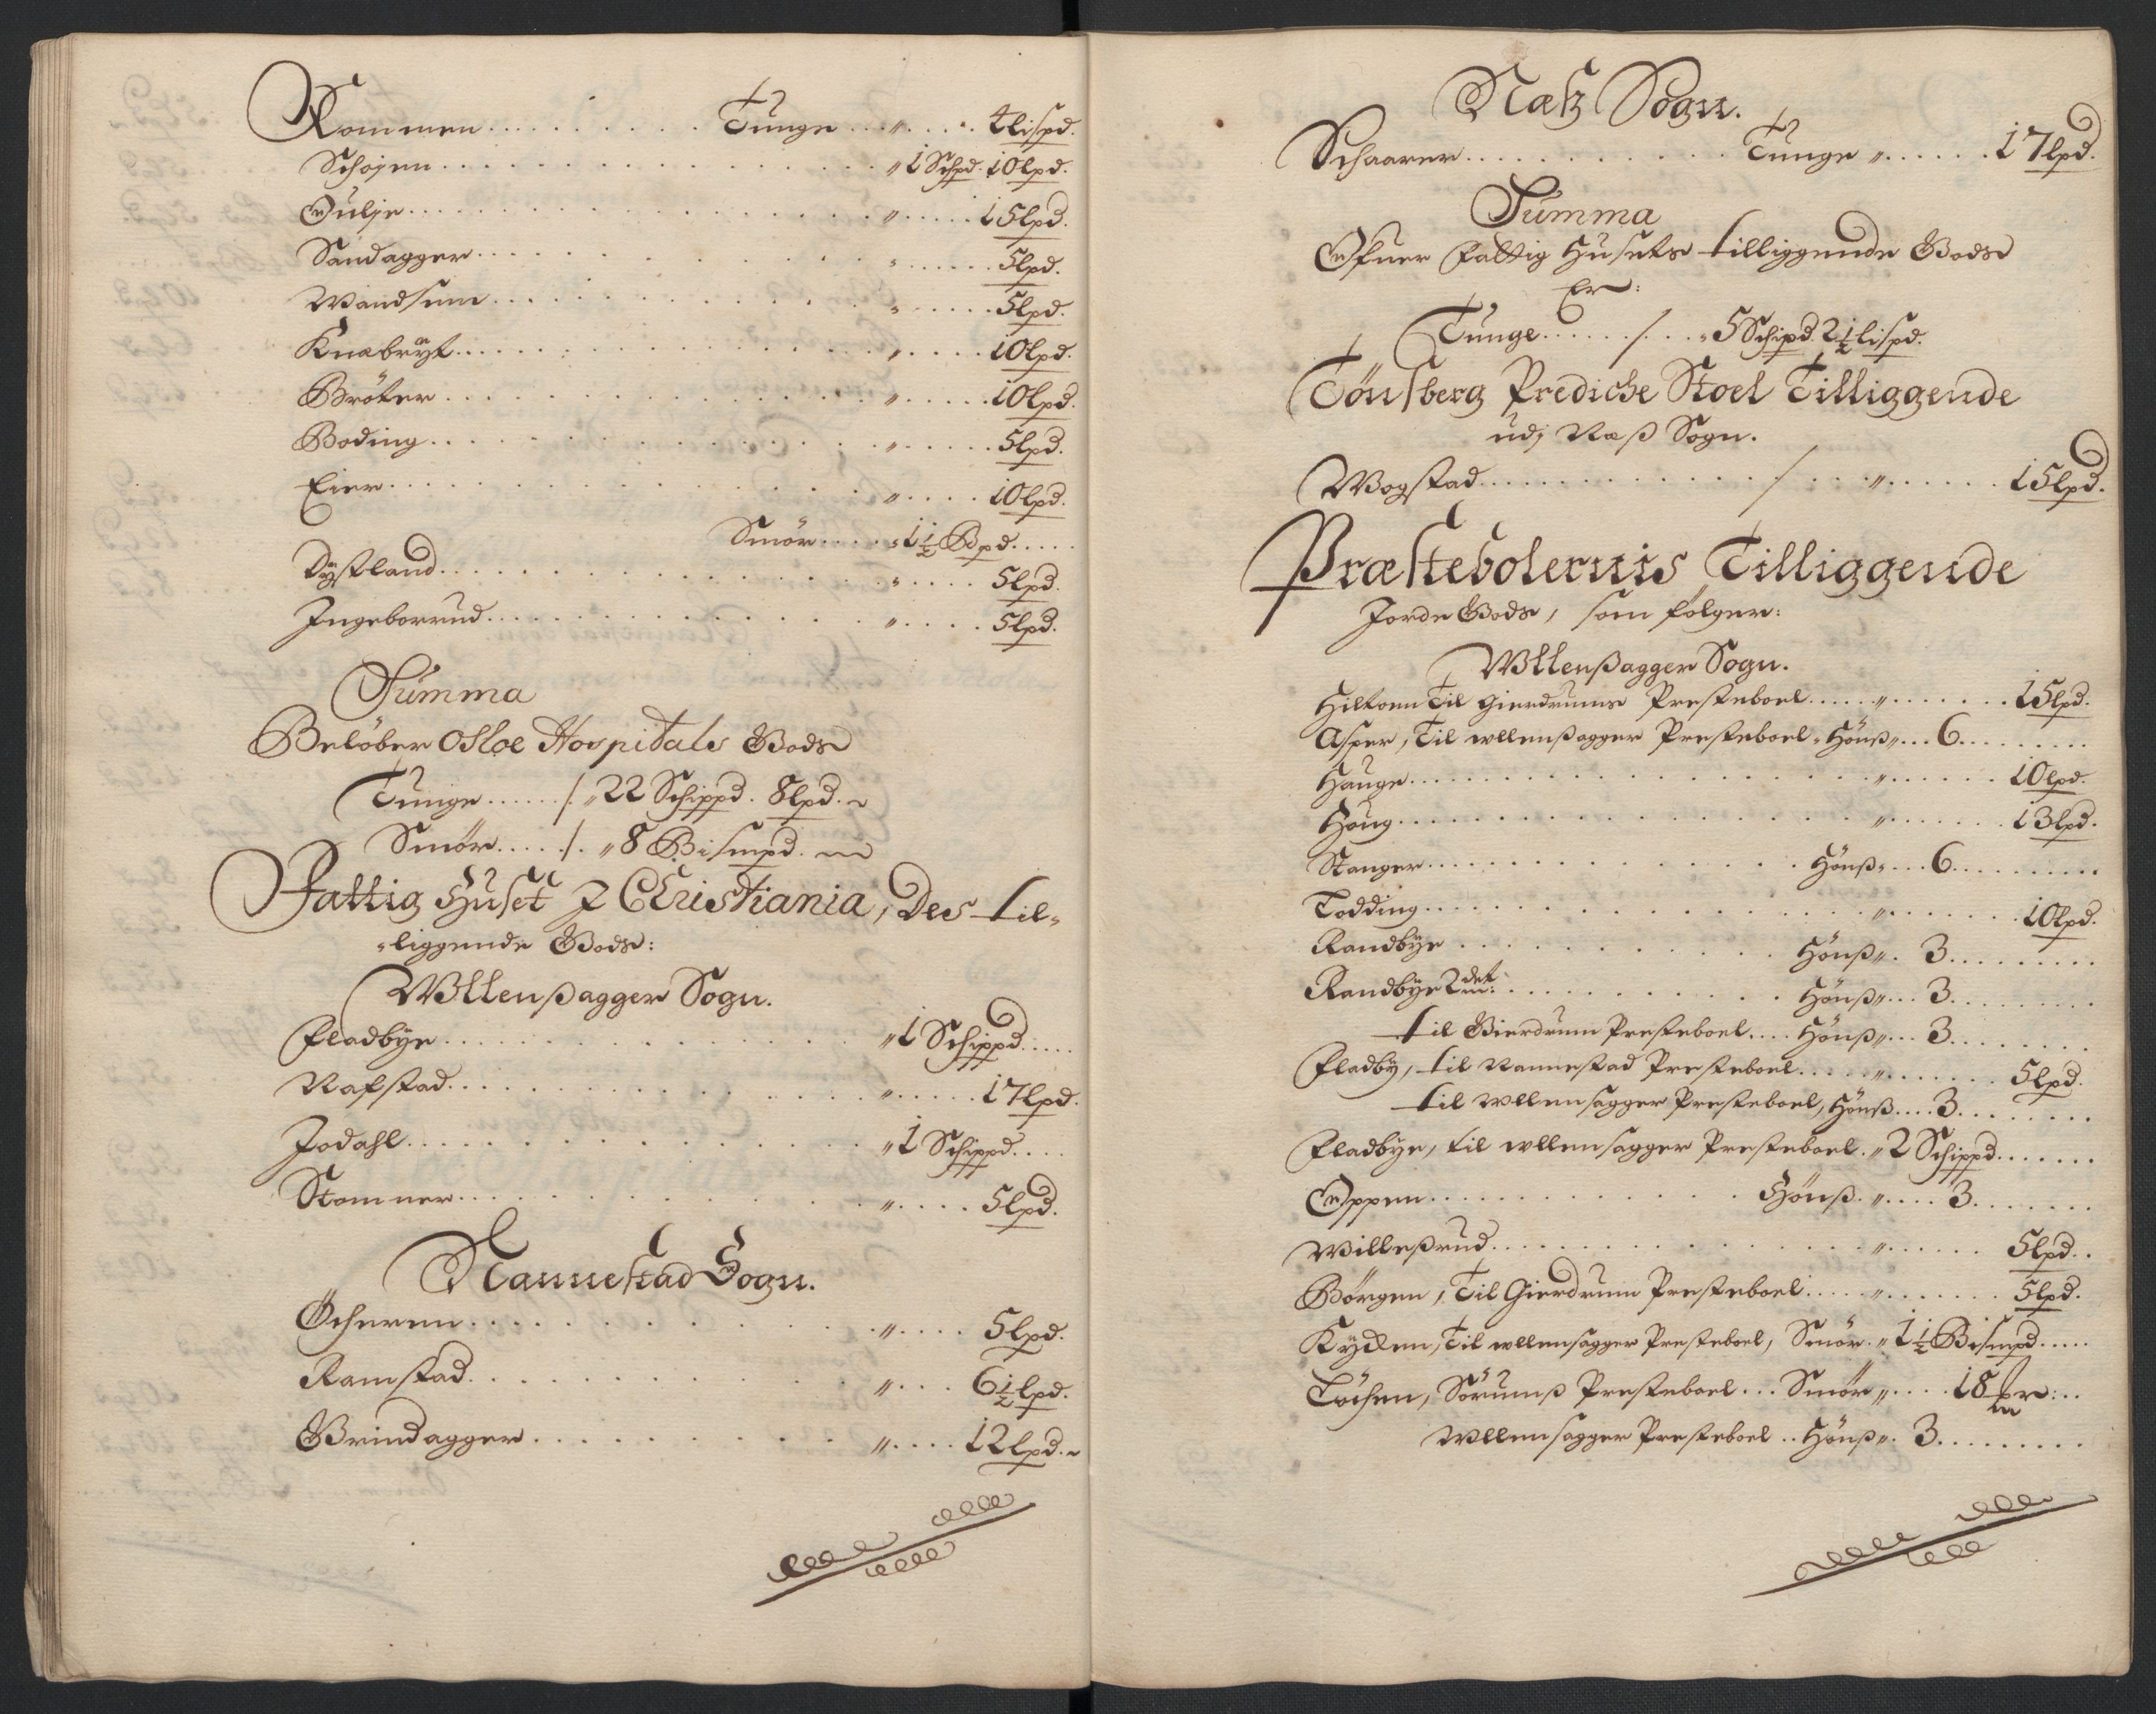 Rommen . . . . . . . . . . Tunge . . . „ . . . . 4 lispd.
Schojen . . . . . . . . . . „ 1 Schpd. 10 lpd.
Oulje . . . . . . . . . . „ . . . . 15 lpd.
Sandagger . . . . . . . . . . „ . . . . 5 lpd.
Wandsum . . . . . . . . . . „ . . . . 5 lpd.
Knabryt . . . . . . . . . . „ . . . . 10 lpd.
Bröter . . . . . . . . . . „ . . . . 10 lpd.
Boding . . . . . . . . . . „ . . . . 5 lpd.
Eier . . . . . . . . . . „ . . . . 10 lpd.
Smör . . . . „ 1½ Bpd. . . . .
Dystland . . . . . . . . . . „ . . . . 5 lpd.
Ingeborrud . . . . . . . . . . „ . . . . 5 lpd.
Summa
Belöber Osloe Hospitals Gods
Tunge . . . . . /. „ 22 Schippd. 8 lpd.
Smör . . . . /. „ 8 Bismpd.
Fattig Huset I Christiania, Des til-
liggende Gods:
Wllenßagger Sogn.
Fladbye . . . . . . . . . . „ 1 Schippd. . . . .
Rafstad . . . . . . . . . . „ . . . . 17 lpd.
Jodahl . . . . . . . . . . „ 1 Schippd. . . . .
Stomner . . . . . . . . . . „ . . . . 5 lpd.
Nannestad Sogn.
Ocheren . . . . . . . . . . „ . . . . 5 lpd.
Ramstad . . . . . . . . . . „ . . . 6½ lpd.
Grindagger . . . . . . . . . . „ . . . . 12 lpd.
Næß Sogn.
Schaarer . . . . . . . . . . Tunge „ . . . . . . 17 lpd.
Summa
Ofver Fattig Husets tilliggende Gods
Er:
Tunge . . . . . . /. . . „ 5 Schipd. 2½ lispd.
Tönsberg Prediche Stoel Tilliggende
udj Næß Sogn.
Wogstad . . . . . . . . . . / . . . „ . . . . . . 15 lpd.
Præstebolernis Tilliggende
Jorde Gods, som følger:
Wllenßagger Sogn.
Hiltoen Til Gierdrums Presteboel . . . . . „ . . . . . . 15 lpd.
Asper, Til wllenßagger Presteboel „ Hönß „ . . . 6 . . . . . . . .
Hauge . . . . . . . . . . „ . . . . . . 10 lpd.
Houg . . . . . . . . . . „ . . . . . . 13 lpd.
Stanger . . . . . . . . . . Hönß „ . . . 6 . . . . . . . .
Todding . . . . . . . . . . „ . . . . . . 10 lpd.
Randbye . . . . . . . . . . Hönß „ . 3 . . . . . . . .
Randbye 2det: . . . . . . . . . . Hönß „ . . . 3 . . . . . . . .
til Gierdrum Presteboel . . . . Hönß „ . . . 3 . . . . . . . .
Fladby, til Nannestad Presteboel . . . . . „ . . . . . . 5 lpd.
til wllensagger Presteboel, Hönß . . . . 3 . . . . . . . .
Fladbye, til wllensagger Presteboel . „ 2 Schippd. . . . . . .
Oppen . . . . . . . . . . Hönß . „ . . . . 3 . . . . . . .
Willeßrud . . . . . . . . . . „ . . . . . . 5 lpd. .
Börgen, Til Gierdrum Presteboel . . . . . „ . . . . . . 5 lpd.
Kycklen, Til wllensagger Presteboel, Smör . „ 1½ Bismpd. . . . .
Töchen, Sörumß Presteboel . . . Smör „ . . . . 18 mr: . .
Wllensagger Presteboel . . Hönß „ . 3 . . . . . . . .